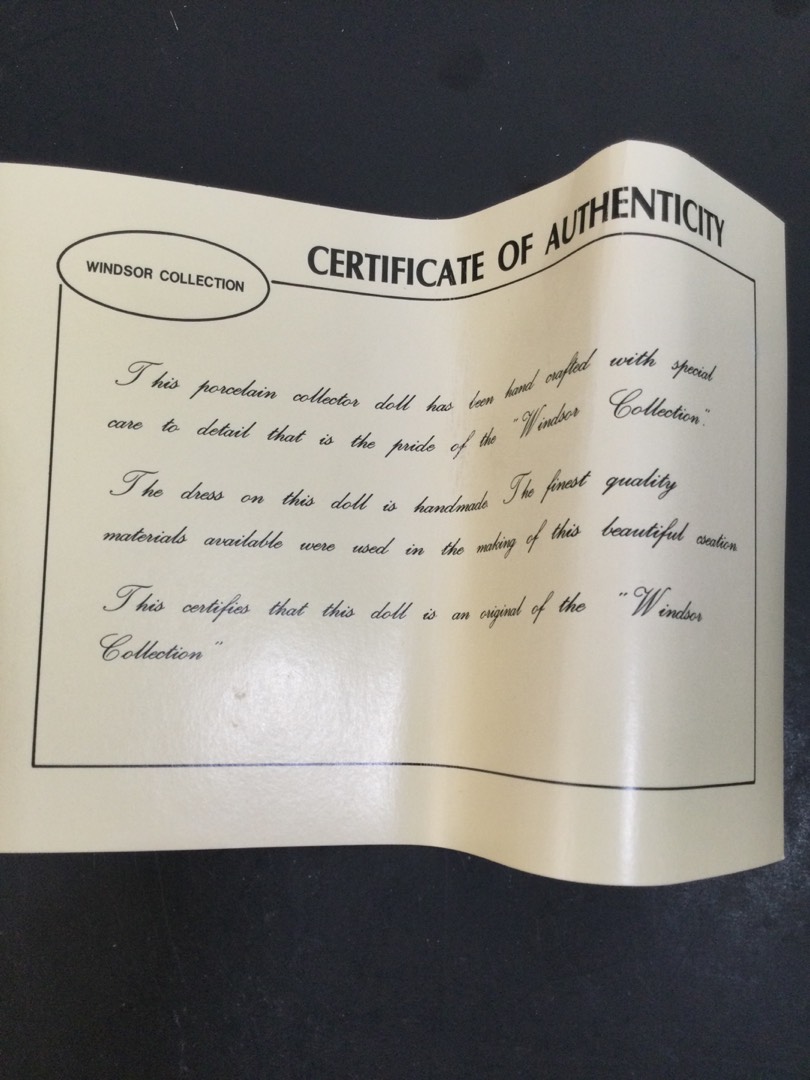 WINDSOR COLLECTION
CERTIFICATE OF AUTHENTICITY
This porcelain collector doll has been hand crafted with special
care to detail that is the pride of the "Windsor Collection".
The dress on this doll is handmade. The finest quality
materials available were used in the making of this beautiful creation
This certifies that this doll is an original of the "Windsor
Collection"